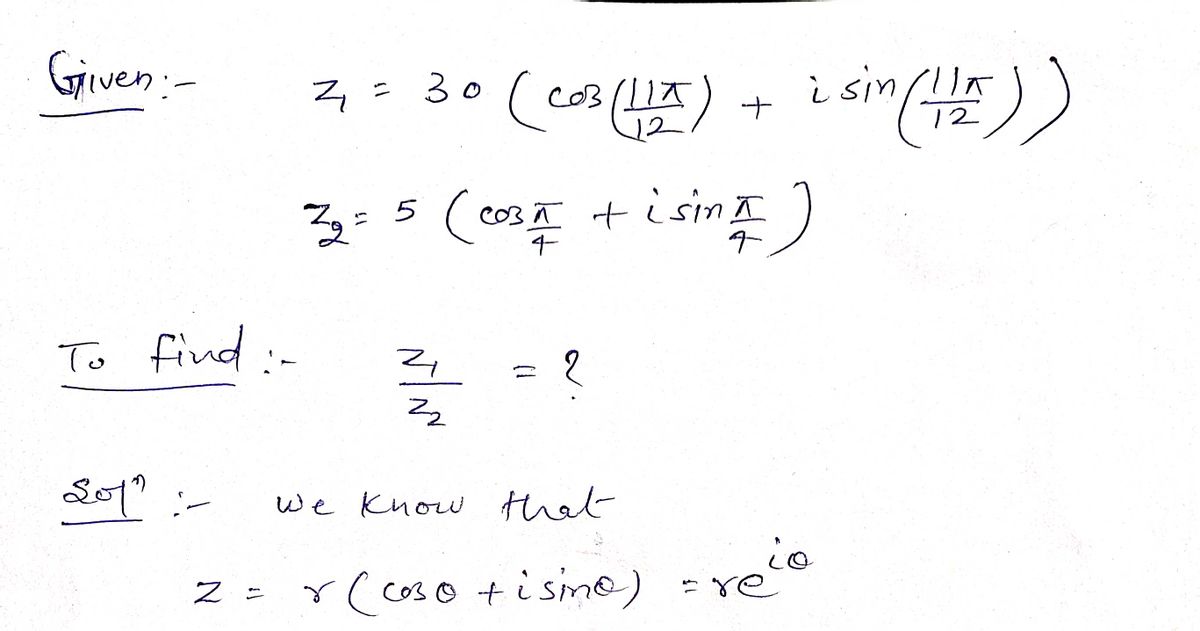 Given:- z₁ = 30 (cos(11π/12) + i sin(11π/12))
z₂ = 5 (cos π/4 + i sin π/4)
To find :- z₁/z₂ = ?
Solⁿ :- we know that
z = r(cosθ + i sinθ) = re^{iθ}